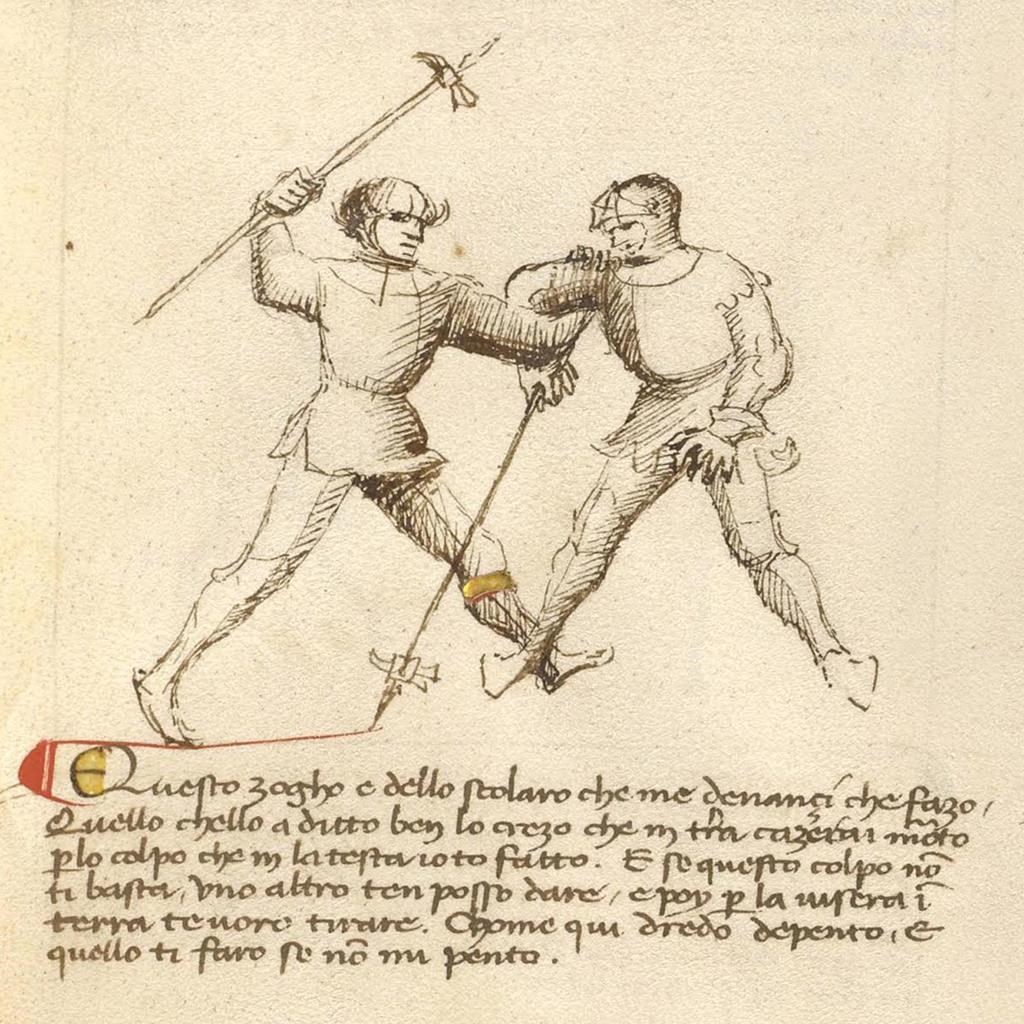 Questo zogho e dello scolaro che me denanci che fazo,
Quello chello a ditto ben lo crezo che in t̃ra cazerai mõto
p̱lo colpo che in la testa io to fatto. E se questo colpo nõ
ti basta, uno altro ten posso dare, e poy p̱ la uisera ĩ
terra te uoro tirare. Chome qui dredo depento, E
quello ti faro se nõ mi pento.